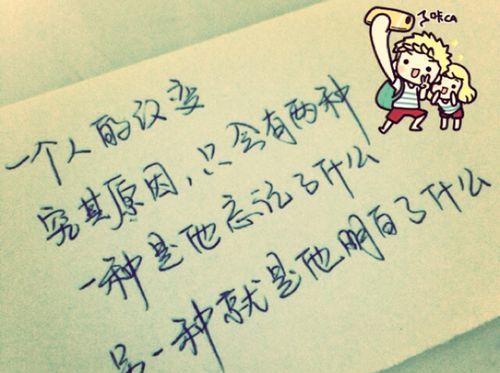 一个人的改变
究其原因，只会有两种
一种是他忘记了什么
另一种就是他明白了什么